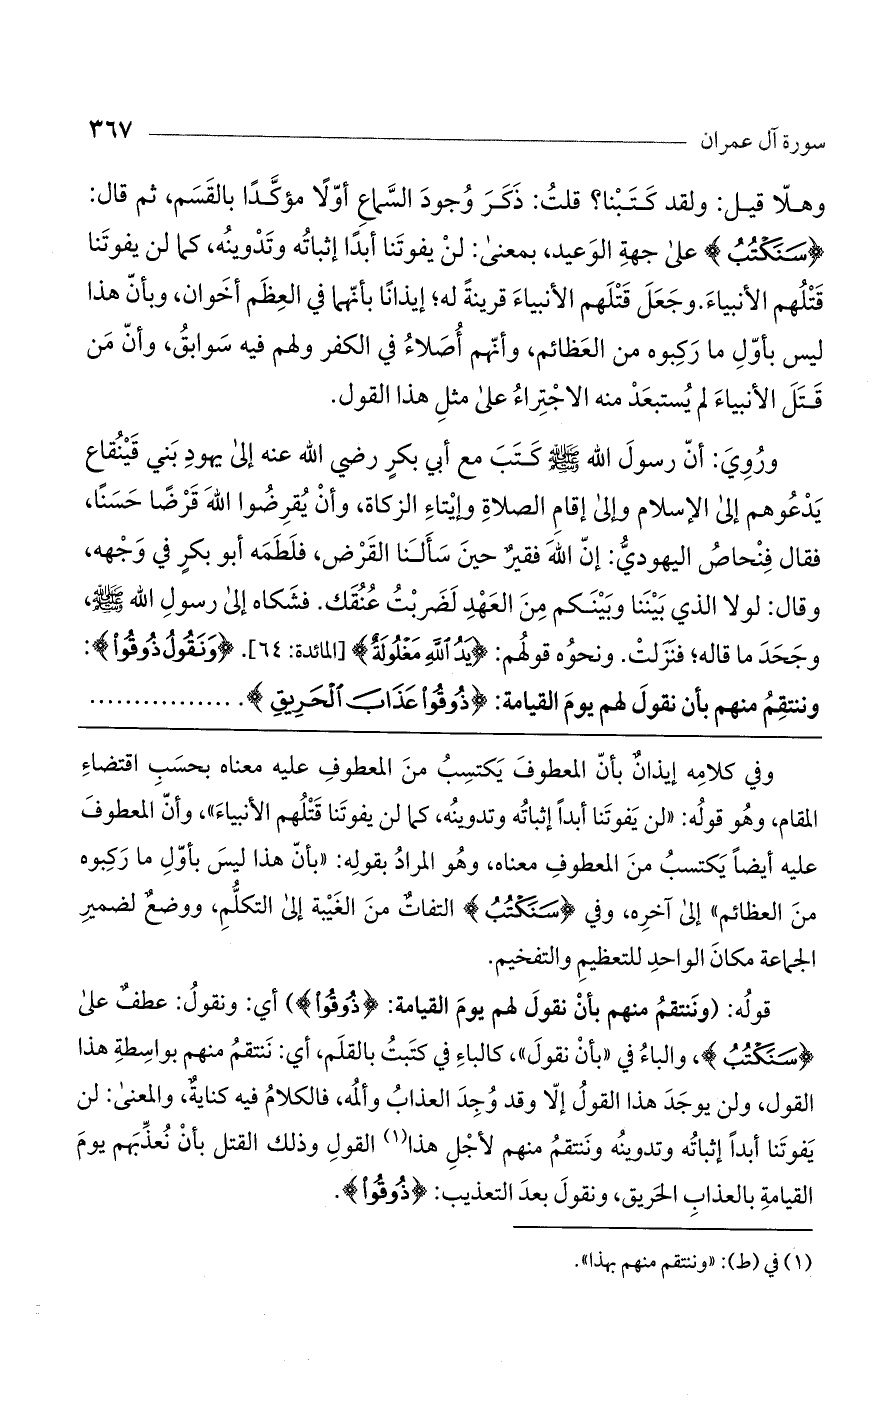 سورة آل عمران ٣٦٧
وهـلّا قيـل: ولقد كَـتَـبْنا؟ قلتُ: ذَكَـرَ وُجودَ السَّماعِ أوّلًا مؤكَّـدًا بالقَسَم، ثم قال:
﴿سَنَكْتُبُ﴾ علىٰ جهةِ الوَعيد، بمعنىٰ: لنْ يفوتَنا أبدًا إثباتُه وتَدْوينُه، كما لن يفوتَنا
قَتْلُهم الأنبياءَ. وجَعَلَ قَتْلَهم الأنبياءَ قرينةً له؛ إيذانًا بأنّهما في العِظَم أخَوان، وبأنّ هذا
ليس بأوّلِ ما رَكِبوه من العَظائم، وأنّهم أُصَلاءُ في الكفر ولهم فيه سَوابقُ، وأنّ مَن
قَـتَلَ الأنبياءَ لم يُستبعَدْ منه الاجْتِراءُ علىٰ مثلِ هذا القول.
ورُوِيَ: أنّ رسولَ الله ﷺ كَـتَبَ مع أبي بكرٍ رضي الله عنه إلىٰ يهودِ بَني قَيْنُقاع
يَدْعُوهم إلىٰ الإسلام وإلىٰ إقامِ الصلاةِ وإيْتاءِ الزكاة، وأنْ يُقرِضُوا اللهَ قَرْضًا حَسَنًا،
فقال فِنْحاصُ اليهوديُّ: إنّ اللهَ فقيرٌ حينَ سَألَـنَا القَرْض، فلَطَمَه أبو بكرٍ في وَجْهه،
وقال: لولا الذي بَيْنَنا وبَيْنَـكم مِنَ العَهْدِ لَضَرَبْتُ عُنُقَك. فشَكاه إلىٰ رسولِ الله ﷺ،
وجَحَدَ ما قاله؛ فنَزَلتْ. ونحوُه قولُهم: ﴿يَدُ ٱللَّهِ مَغْلُولَةٌ﴾ [المائدة: ٦٤]. ﴿وَنَقُولُ ذُوقُوا۟﴾:
وننتقِمُ منهم بأن نقولَ لهم يومَ القيامة: ﴿ذُوقُوا۟ عَذَابَ ٱلْحَرِيقِ﴾. ................
وفي كلامِه إيذانٌ بأنّ المعطوفَ يَكتسِبُ منَ المعطوفِ عليه معناه بحسَبِ اقتضاءِ
المقام، وهُو قولُه: «لن يَفوتَنا أبداً إثباتُه وتدوينُه، كما لن يفوتَنا قَتْلُهم الأنبياءَ»، وأنّ المعطوفَ
عليه أيضاً يَكتسبُ منَ المعطوفِ معناه، وهُو المرادُ بقولِه: «بأنّ هذا ليسَ بأوّلِ ما رَكِبوه
منَ العظائم» إلىٰ آخرِه، وفي ﴿سَنَكْتُبُ﴾ التفاتٌ منَ الغَيْبة إلىٰ التكلُّمِ، ووضعٌ لضميرِ
الجماعة مكانَ الواحدِ للتعظيمِ والتفخيم.
قولُه: (ونَنتقمُ منهم بأنْ نقولَ لهم يومَ القيامة: ﴿ذُوقُوا۟﴾) أي: ونقولُ: عطفٌ علىٰ
﴿سَنَكْتُبُ﴾، والباءُ في «بأنْ نقولَ»، كالباءِ في كتَبتُ بالقلَم، أي: نَنتقمُ منهم بواسِطةِ هذا
القول، ولن يوجَدَ هذا القولُ إلّا وقد وُجِدَ العذابُ وألمُه، فالكلامُ فيه كنايةٌ، والمعنىٰ: لن
يَفوتَنا أبداً إثباتُه وتدوينُه ونَنتقمُ منهم لأجْلِ هذا(١) القولِ وذلك القتل بأنْ نُعذِّبَهم يومَ
القيامةِ بالعذابِ الحَريق، ونقولَ بعدَ التعذيب: ﴿ذُوقُوا۟﴾.
(١) في (ط): «وننتقم منهم بهذا».